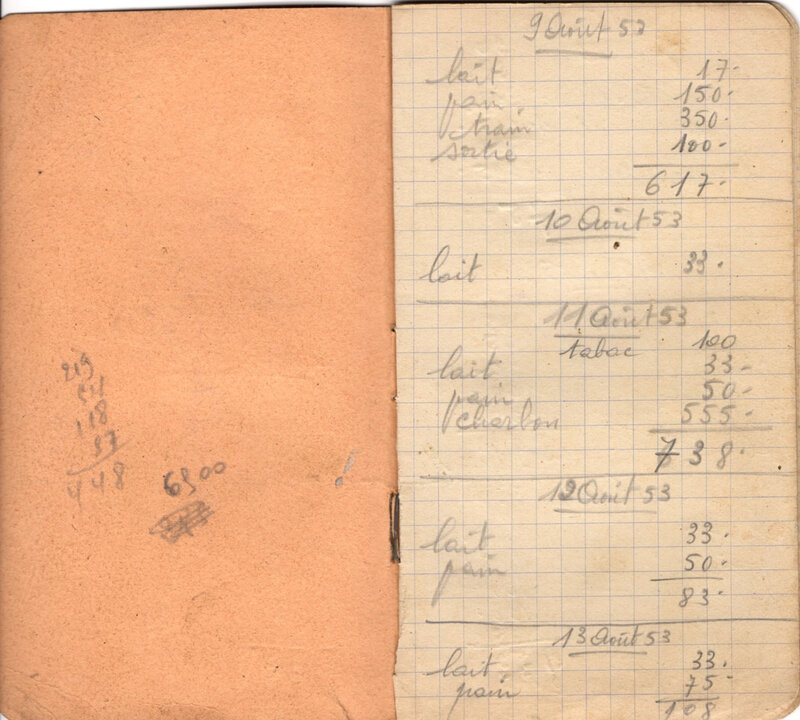 219
118
37
448
6900
9 Août 53
lait 17.
pain 150.
train 350.
sortie 100.
617.
10 Août 53
lait 33.
11 Août 53
tabac 100
lait 33.
pain 50.
charbon 555.
738.
12 Août 53
lait 33.
pain 50.
83.
13 Août 53
lait 33.
pain 75
108